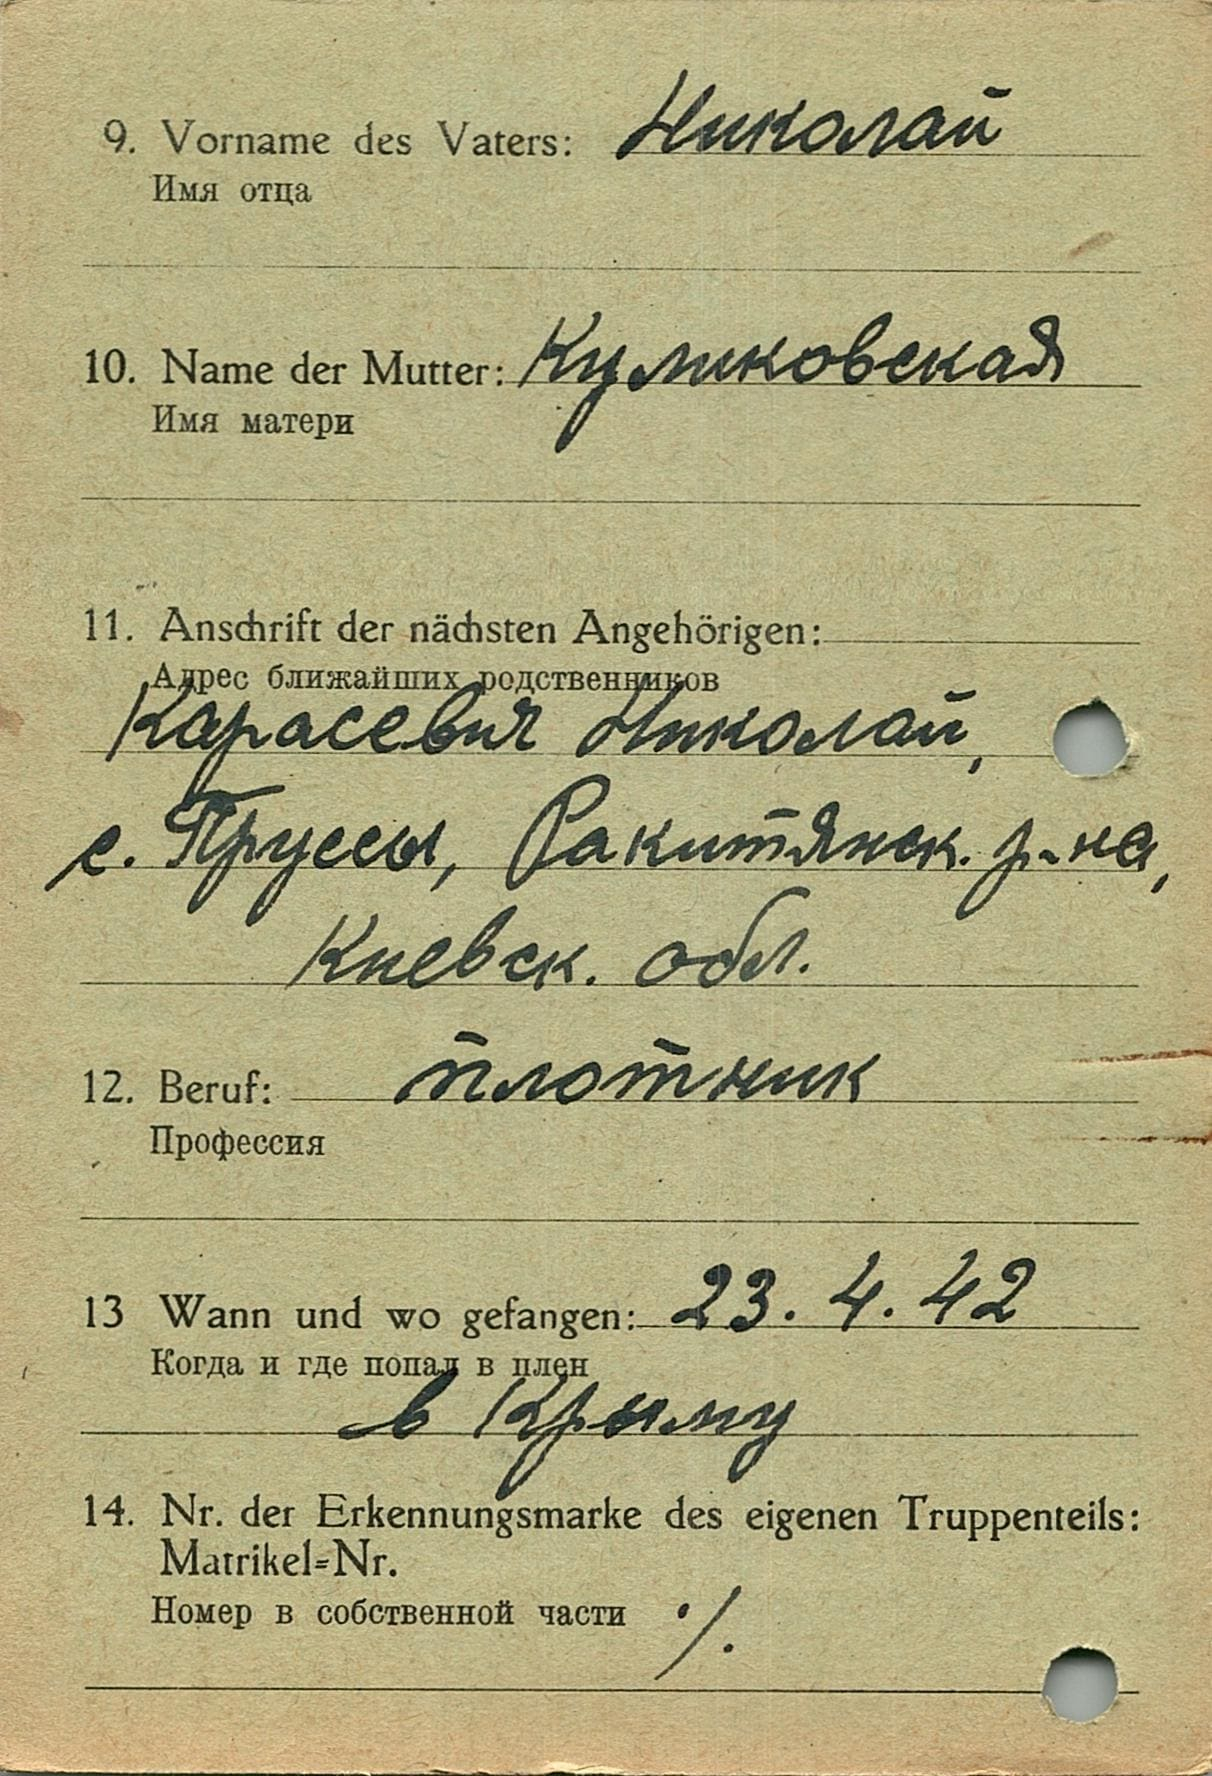 9. Vorname des Vaters: Николай
Имя отца
10. Name der Mutter: Куликовская
Имя матери
11. Anschrift der nächsten Angehörigen:
Адрес ближайших родственников
Карасевич Николай,
с. Пруссы, Ракитянск. р-на,
Киевск. обл.
12. Beruf: плотник
Профессия
13 Wann und wo gefangen: 23. 4. 42
Когда и где попал в плен
в Крыму
14. Nr. der Erkennungsmarke des eigenen Truppenteils:
Matrikel=Nr.
Номер в собственной части ./.